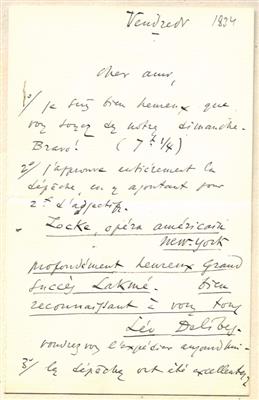 Vendredi 1884
Cher ami,
1°/ je suis bien heureux que
vous soyez des nôtres dimanche.
Bravo! (7h 1/4)
2°/ j'approuve entièrement la
dépêche, en y ajoutant pour
2 d'adjectifs.
Locke, opéra américain
New-York
Profondément heureux Grand
Succès Lakmé. bien
reconnaissant à vous tous
Léo Delibes.
voudrez vous l'expédier aujourd'hui.
3°/ les dépêches ont été excellentes